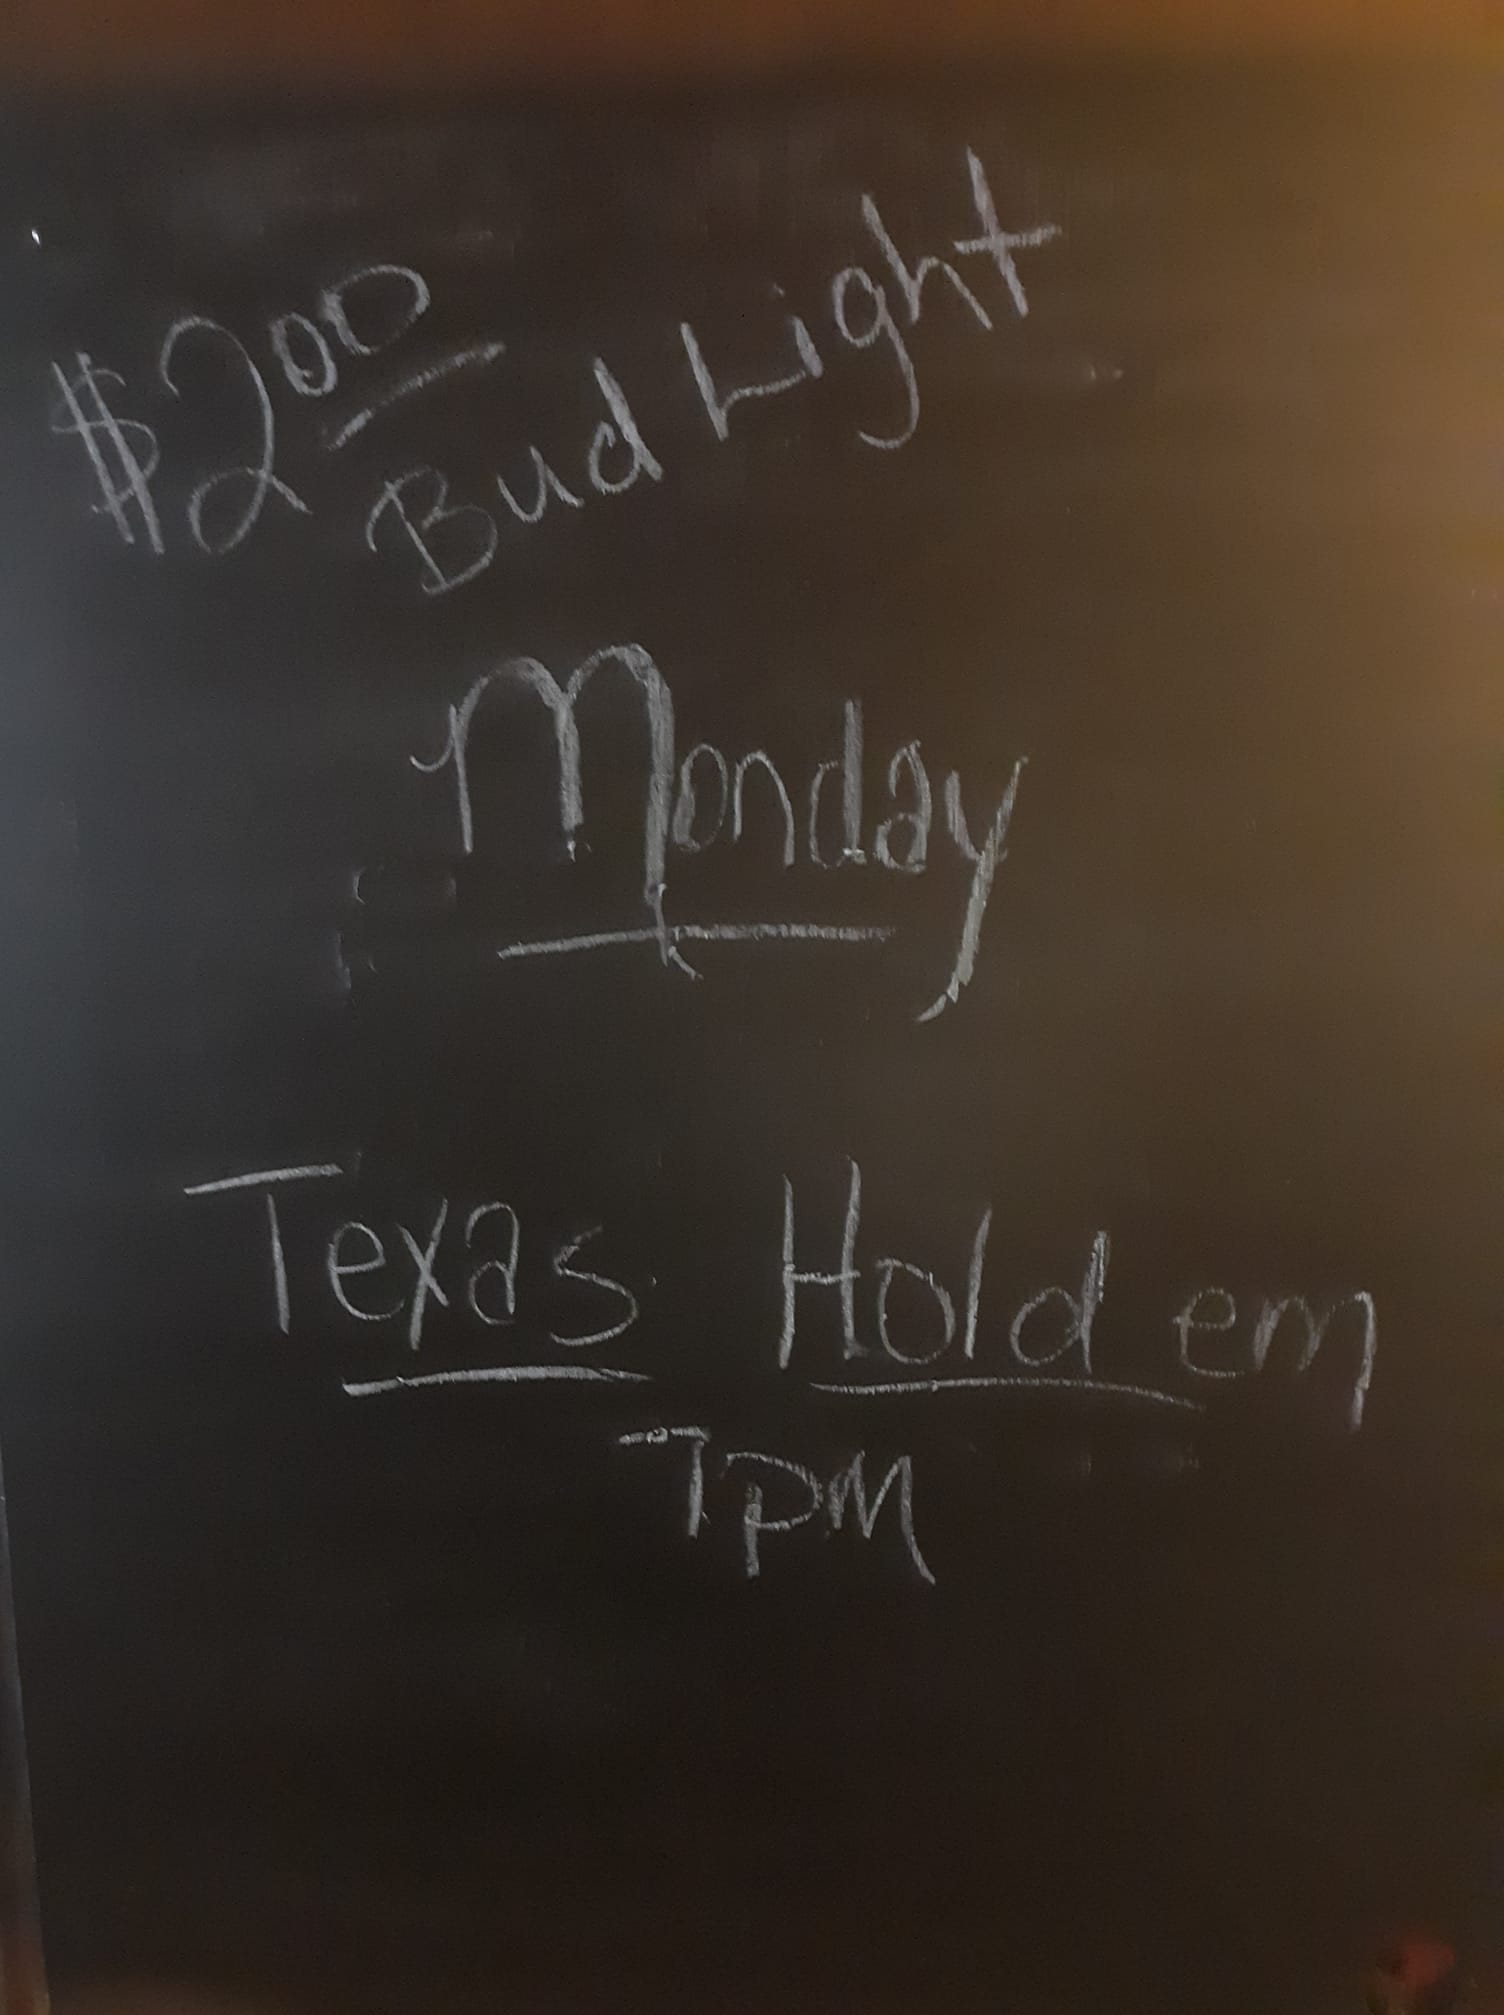 $200
Bud Light
Monday
Texas Hold em
7PM